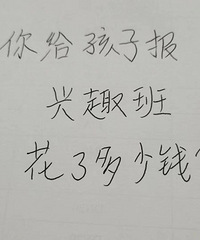 你给孩子报
兴趣班
花了多少钱